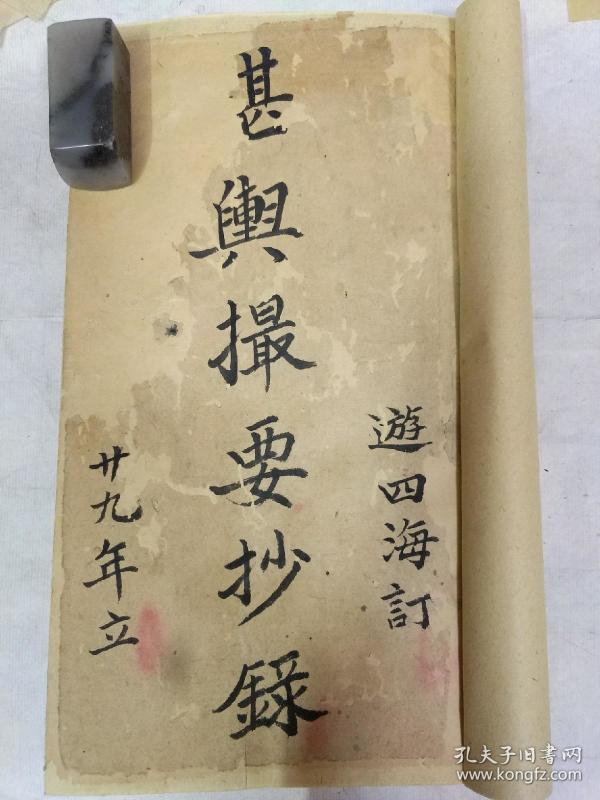 遊四海訂
甚輿撮要抄錄
廿九年立
孔夫子旧书网
www.kongfz.com